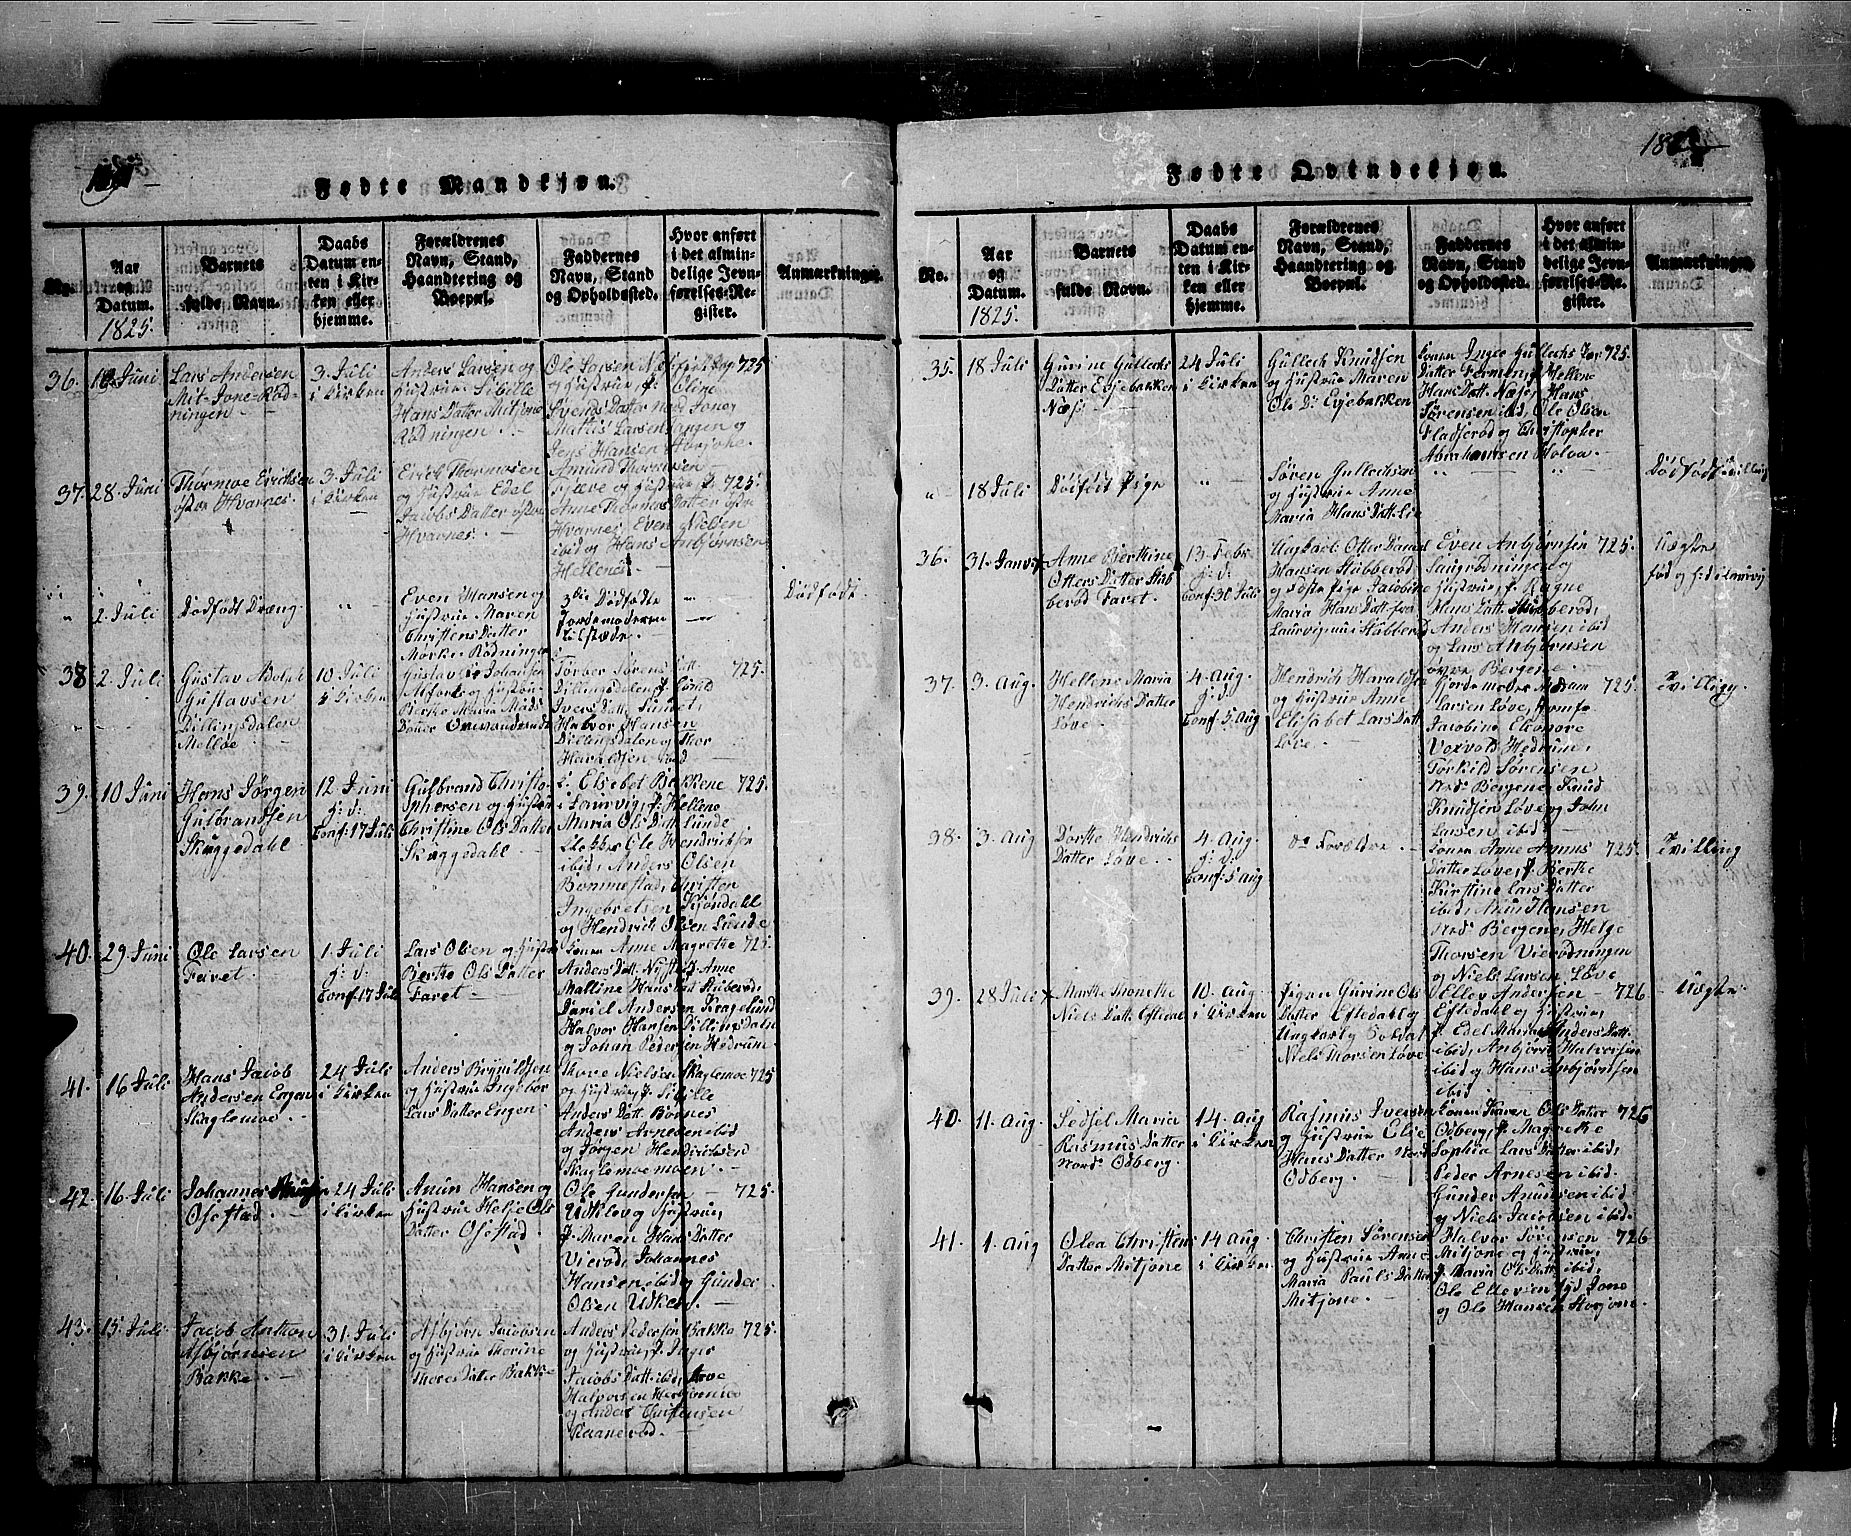 Fødte Mandkjøn.
No.
Aar og Datum. 1825.
Barnets fulde Navn.
Daabs Datum enten i Kirken eller hjemme.
Forældrenes Navn, Stand, Haandtering og Boepæl.
Faddernes Navn, Stand og Opholdssted.
Hvor anført i det almindelige Jevnførelses-Register.
Anmærkninger.
36. Juni
Lars Andersen
Mit-Jone-Rødningen
3. Juli
i Kirken
Anders Larsen og
Hustrue Sibille
Hans Datter Mitjone
Rødningen
Ole Larsen
og Hustrue, J. Oline
Svends Datter nord Jone,
Mathis Larsen Langen og
Jens Hansen
725
37. 28. Juni
Thormoe Erichsen
østre Hvarnes
3. Juli
i Kirken
Erich Thormosen
og Hustrue Edel
Jacobs Datter østre
Hvarnes.
Amund Thormosen
Tjæve og Hustrue, J. 725.
Anne Thormos Datter østre
Hvarnes, Even Nielsen
ibid og Hans Anbjørnsen
Hellenes.
" 2. Juli
Dødfødt Dræng
"
Even Hansen og
Hustrue Maren
Christens Datter
Mørke-Rødningen
3die Dødfødte
Jordemoderen
tilstæde.
Dødfødt.
38 2. Juli
Gustav Adolph
Gustavsen
Dillingsdalen
Melløe
10 Juli
i Kirken
Gustav Johansen
Alfort og Hustrue
Berthe Maria Mads
Datter Omvandrende
Torber Sørens Datt.
Dillingsdalen, J. Gunild
Ivers Datt. Sundet,
Halvor Hansen
Dillingsdalen og Thor
Haraldsen
725.
39. 10 Juni
Hans Jørgen
Gulbrandsen
Skuggedahl
12 Juni
h: d:
Conf: 17 Juli
Gulbrand Christo-
phersen og Hustrue
Christine Ols Datter
Skuggedahl
K. Elsebet Bakkene 725.
i Laurvig, J. Hellene
Maria Ols Datt. Lunde
Klokker Ole Hendrichsen
ibid, Anders Olsen
Bommestad, Christen
Ingebretsen Kjøndahl
og Hendrich Olsen Lunde
40. 29 Juni
Ole Larsen
Faret.
1. Juli
h: d:
Conf. 17 Juli
Lars Olsen og Hustrue
Berthe Ols Datter
Faret
Konen Anne Magrethe 725.
Anders Datt. J. Anne
Malline Hans Datt. Stuberød,
Daniel Andersen Kragelund
Halvor Hansen Dillingsdalen
og Johan Pedersen Hedrum
41. 16 Juli
Hans Jacob
Andersen Engen
Skaglemoe
24 Juli
i Kirken
Anders Brynildsen
og Hustrue Ingebor
Lars Datter Engen
Thore Nielsen Skaglemoe 725
og Hustrue, J. Sibille
Anders Datt. Bornes
Anders Arnesen ibid
og Jørgen Hendrichsen
Skaglemoemoen.
42. 16 Juli
Johannes
Ofestad.
24 Juli
i Kirken
Amun Hansen og
Hustrue Helje Ols
Datter Ofestad
Ole Gundersen — 725.
Udklev og Hustrue,
J. Maren Hans Datter
Vierød, Johannes
Hansen ibid og Gunder
Olsen Udklev.
43. 15. Juli
Jacob Anthon
Asbjørnsen
Bakke.
31. Juli
i Kirken
Asbjørn Jacobsen
og Hustrue Thorine
Thores Datter Bakke
Anders Pedersen Bakke 725.
og Hustrue, J. Inger
Jacobs Datt. ibid, Arve
Halvorsen
og Anders Christensen
Raanerød.
18
Fødte Qvindekjøn.
No.
Aar og Datum. 1825.
Barnets fulde Navn.
Daabs Datum enten i Kirken eller hjemme.
Forældrenes Navn, Stand, Haandtering og Boepæl.
Faddernes Navn, Stand og Opholdssted.
Hvor anført i det almindelige Jevnførelses-Register.
Anmærkninger.
35. 18 Juli
Gurine Gullechs
Datter Evjebakken
Næs.
24 Juli
i Kirken
Gullech Knudsen
og Hustrue Maren
Ols D. Evjebakken
Konen Inger Gullechs 725.
Datter Hellene
Hans Datt. Næss, Hans
Sørensen ibid, Ole Olsen
Fladserød og Christopher
Abrahamsen Holva
" 18 Juli
Dødfødt Pige
"
Søren Gullechsen
og Hustrue Anne
Maria Hans Datt. Lie
Dødfødt Tvilling
36. 31. Janv.
Anne Berthine
Otters Datter Stub
berød Faret.
13. Febr
h: d:
Conf: 31 Juli
Ungkarl Otter Daniel
Hansen Stubberød
og Pige Jacobine
Maria Hans Datt. fra
Laurvig nu i Stubberød
Even Anbjørnsen 725.
Saugrødningen og
Hustrue, J. Ragne
Hans Datt. Stubberød,
Anders Hansen ibid
og Lars Anbjørnsen
øvre Bergene
Uægte
fød og i Laurvig
37. 3. Aug.
Hellene Maria
Hendrichs Datter
Løve
4. Aug
h: d:
Conf: 5 Aug
Hendrich Haraldsen
og Hustrue Anne
Elisabet Lars Datt.
Løve.
Gjordemoder Madam 725.
Larsen Løve, Jomfr
Jacobine Eleonore
Voxvold Hedrum,
Torkild Sørensen
Nord Bergene, Knud
Knudsen Løve og John
Larsen ibid
Tvilling.
38. 3. Aug
Dorthe Hendrichs
Datter Løve
4. Aug.
h: d:
Conf: 5 Aug
do Forældre
Konen Anne Amuns 725.
Datter Løve, J. Berthe
Kirstine Lars Datter
ibid, Amun Hansen
Nord Bergene, Helge
Thorsen Vierødningen
og Niels Larsen Løve
Tvilling
39. 28 Juli
Marthe Thonethe
Niels Datt. Efledal
10. Aug
i Kirken
Pigen Gurine Ols
Datter Efledahl og
Ungkarl og Soldat
Niels Thorsen Løve
Ellev Andersen — 726
Efledahl og Hustrue,
J. Edel Maria Anders Datt.
ibid, Anbjørn Halvorsen
ibid og Hans Anbjørnsen
ibid
Uægte
40. 11. Aug.
Sedsel Maria
Rasmus Datter
Nord Odberg.
14. Aug
i Kirken
Rasmus Iversen
og Hustrue Elie
Hans Datter Nord
Odberg.
Konen Karen Ols Datter 726
Odberg, J. Magrethe
Sophia Lars Datter ibid,
Peder Arnesen ibid
Gunder Amunsen ibid
og Niels Jacobsen ibid.
41. 1. Aug
Olea Christens
Datter Mitjone
14 Aug
i Kirken
Christen Sørensen
og Hustrue Anne
Maria Pauls Datter
Mitjone.
Halvor Sørensen 726
Mitjone og Hustrue,
J. Maria Ols Datt. ibid,
Ole Ellevsen Syd Jone
og Ole Hansen Storjone.